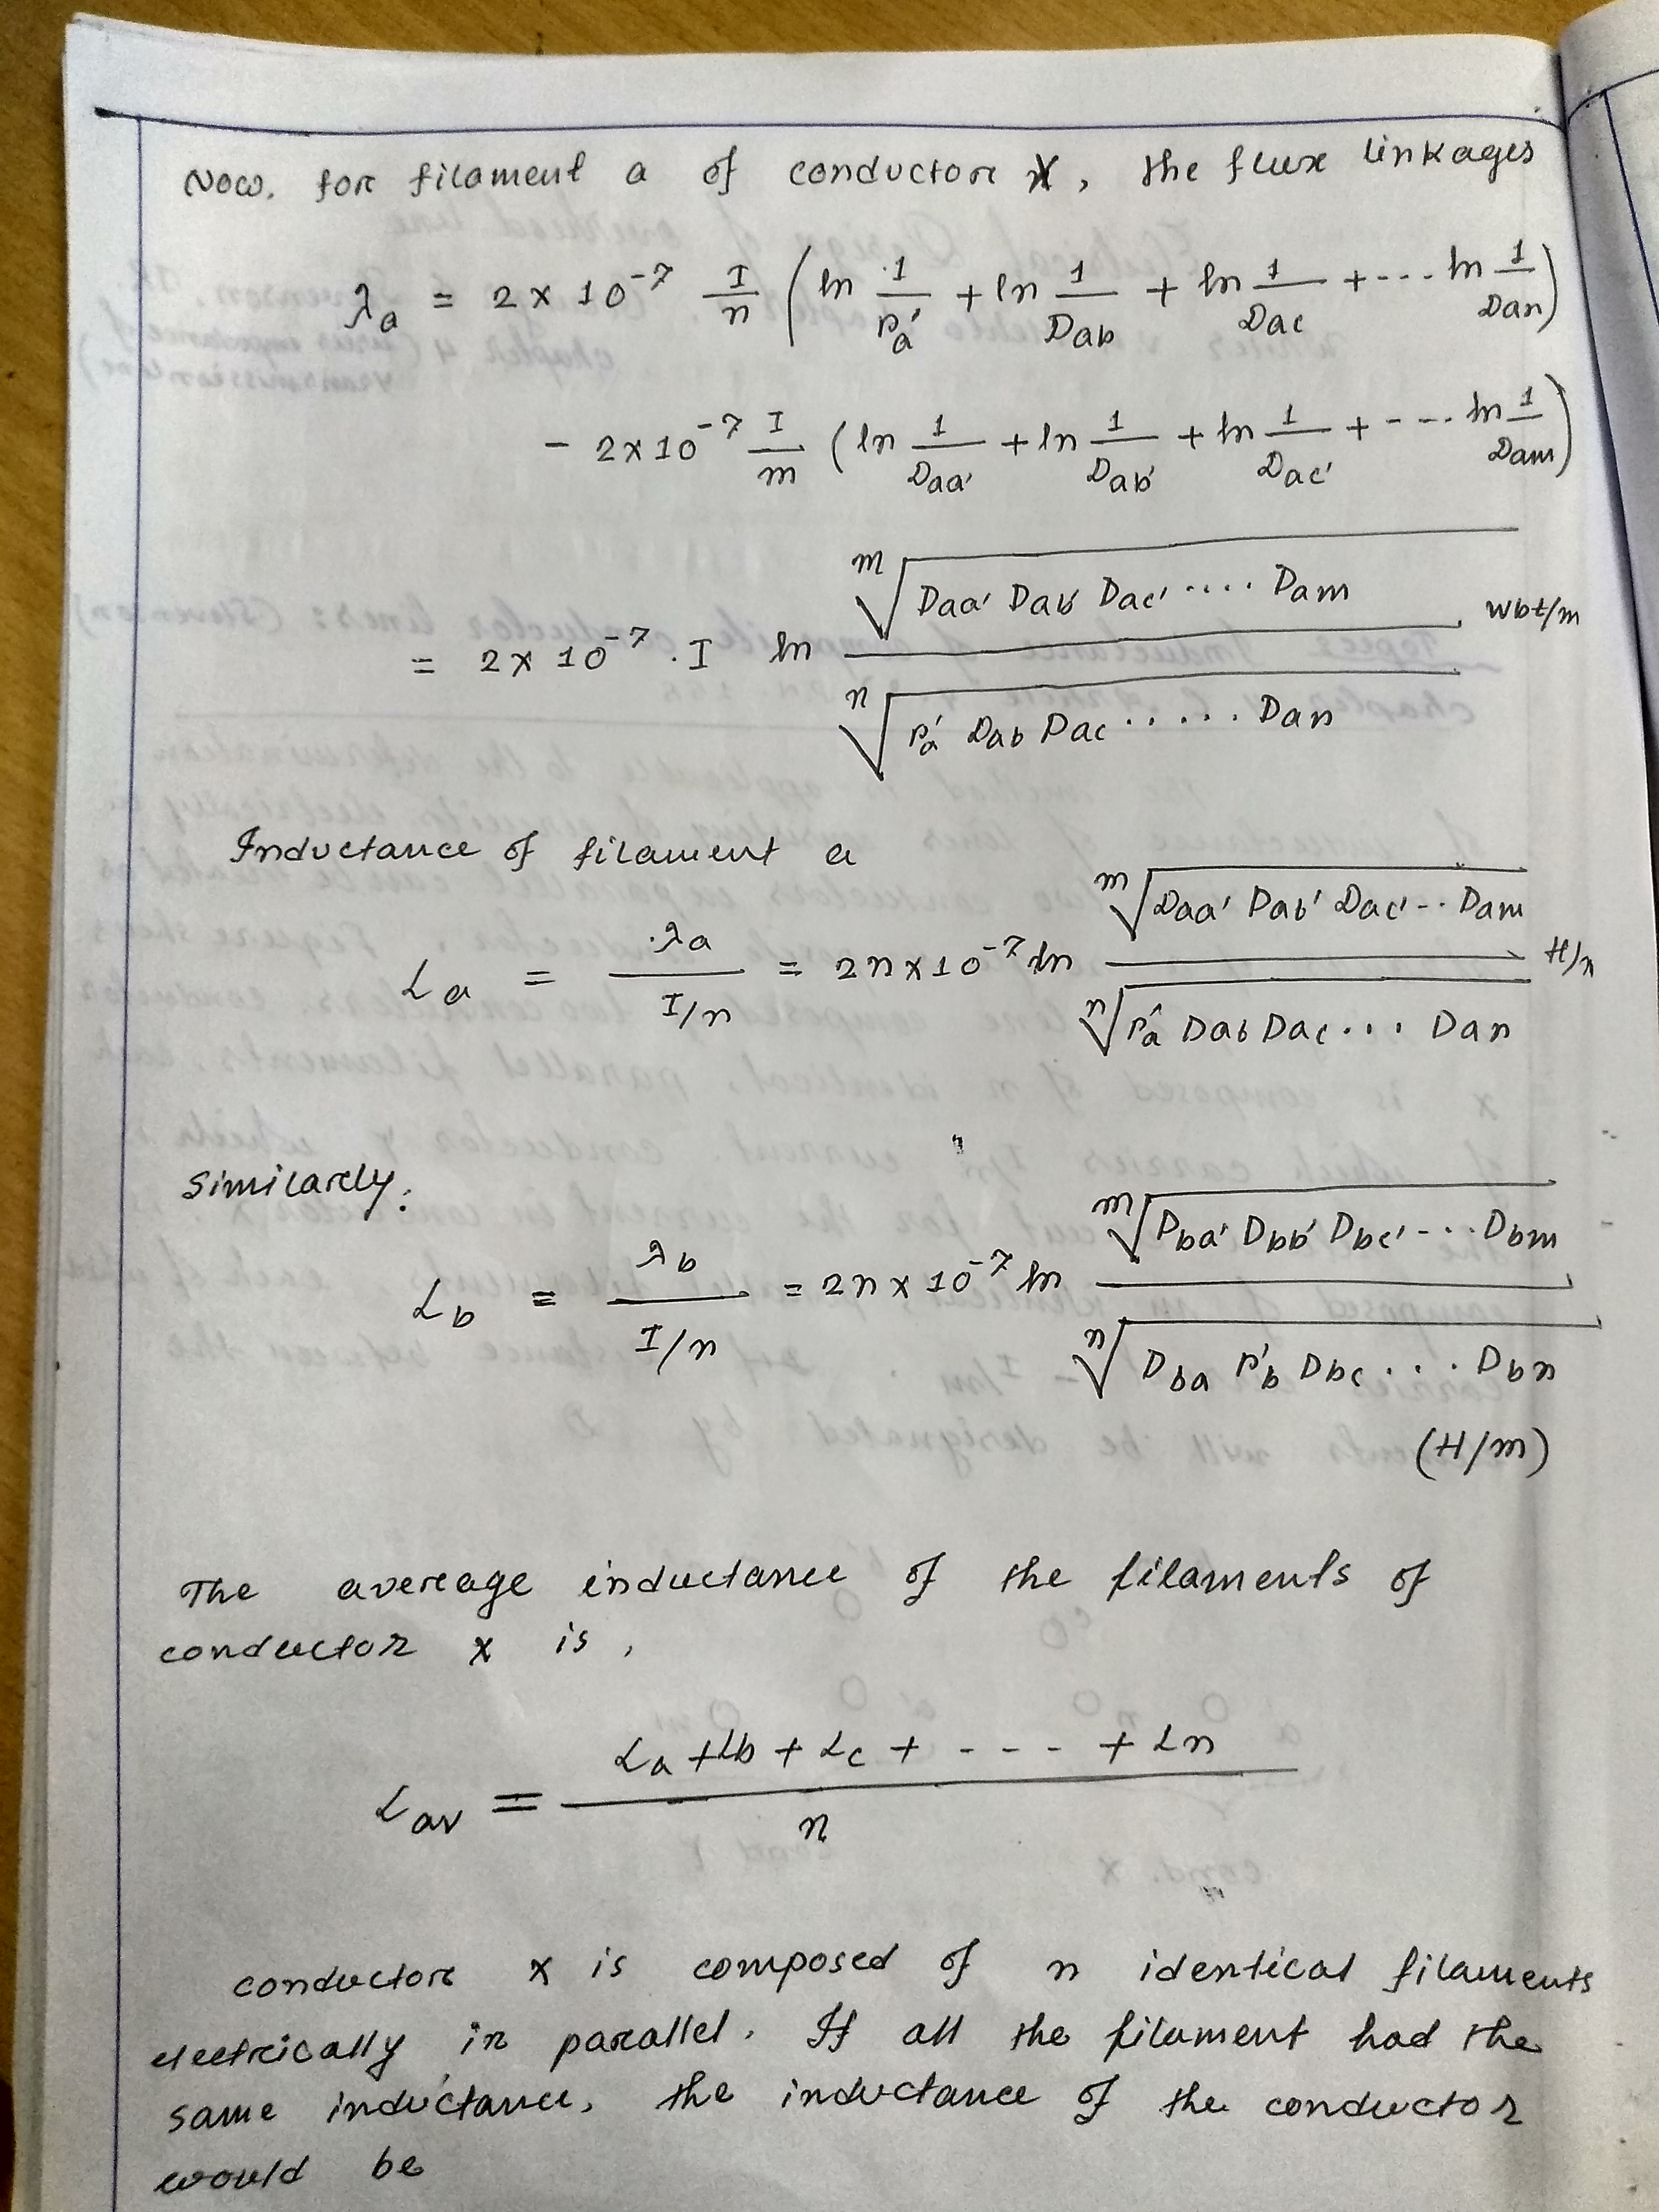 Now, for filament a of conductor X, the flux linkages
λa = 2 × 10⁻⁷ I/n (ln 1/ra' + ln 1/Dab + ln 1/Dac + --- ln 1/Dan)
- 2×10⁻⁷ I/m (ln 1/Daa' + ln 1/Dab' + ln 1/Dac' + ---- ln 1/Dam)
= 2× 10⁻⁷ . I ln ᵐ√(Daa' Dab' Dac' .... Dam) / ⁿ√(ra' Dab Dac ..... Dan) wbt/m
Inductance of filament a
La = λa / (I/n) = 2n×10⁻⁷ ln ᵐ√(Daa' Dab' Dac' -- Dam) / ⁿ√(ra' Dab Dac ... Dan) H/m
Similarly,
Lb = λb / (I/n) = 2n×10⁻⁷ ln ᵐ√(Dba' Dbb' Dbc' --- Dbm) / ⁿ√(Dba rb' Dbc ... Dbn)
(H/m)
The average inductance of the filaments of
conductor x is,
Lav = (La + Lb + Lc + ---- + Ln) / n
conductor x is composed of n identical filaments
electrically in parallel. If all the filament had the
same inductance, the inductance of the conductor
would be